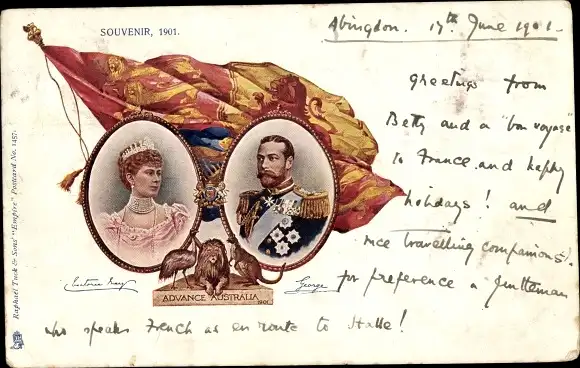 SOUVENIR, 1901.
Abingdon. 17th June 1901.
Greetings from
Betty and a "bon voyage"
to France and happy
holidays! and
nice travelling companions.
for preference a gentleman
who speaks French as en route to Halle!
Victoria Mary
George
ADVANCE AUSTRALIA
1901.
Raphael Tuck & Sons' "Empire" Postcard No. 1457.